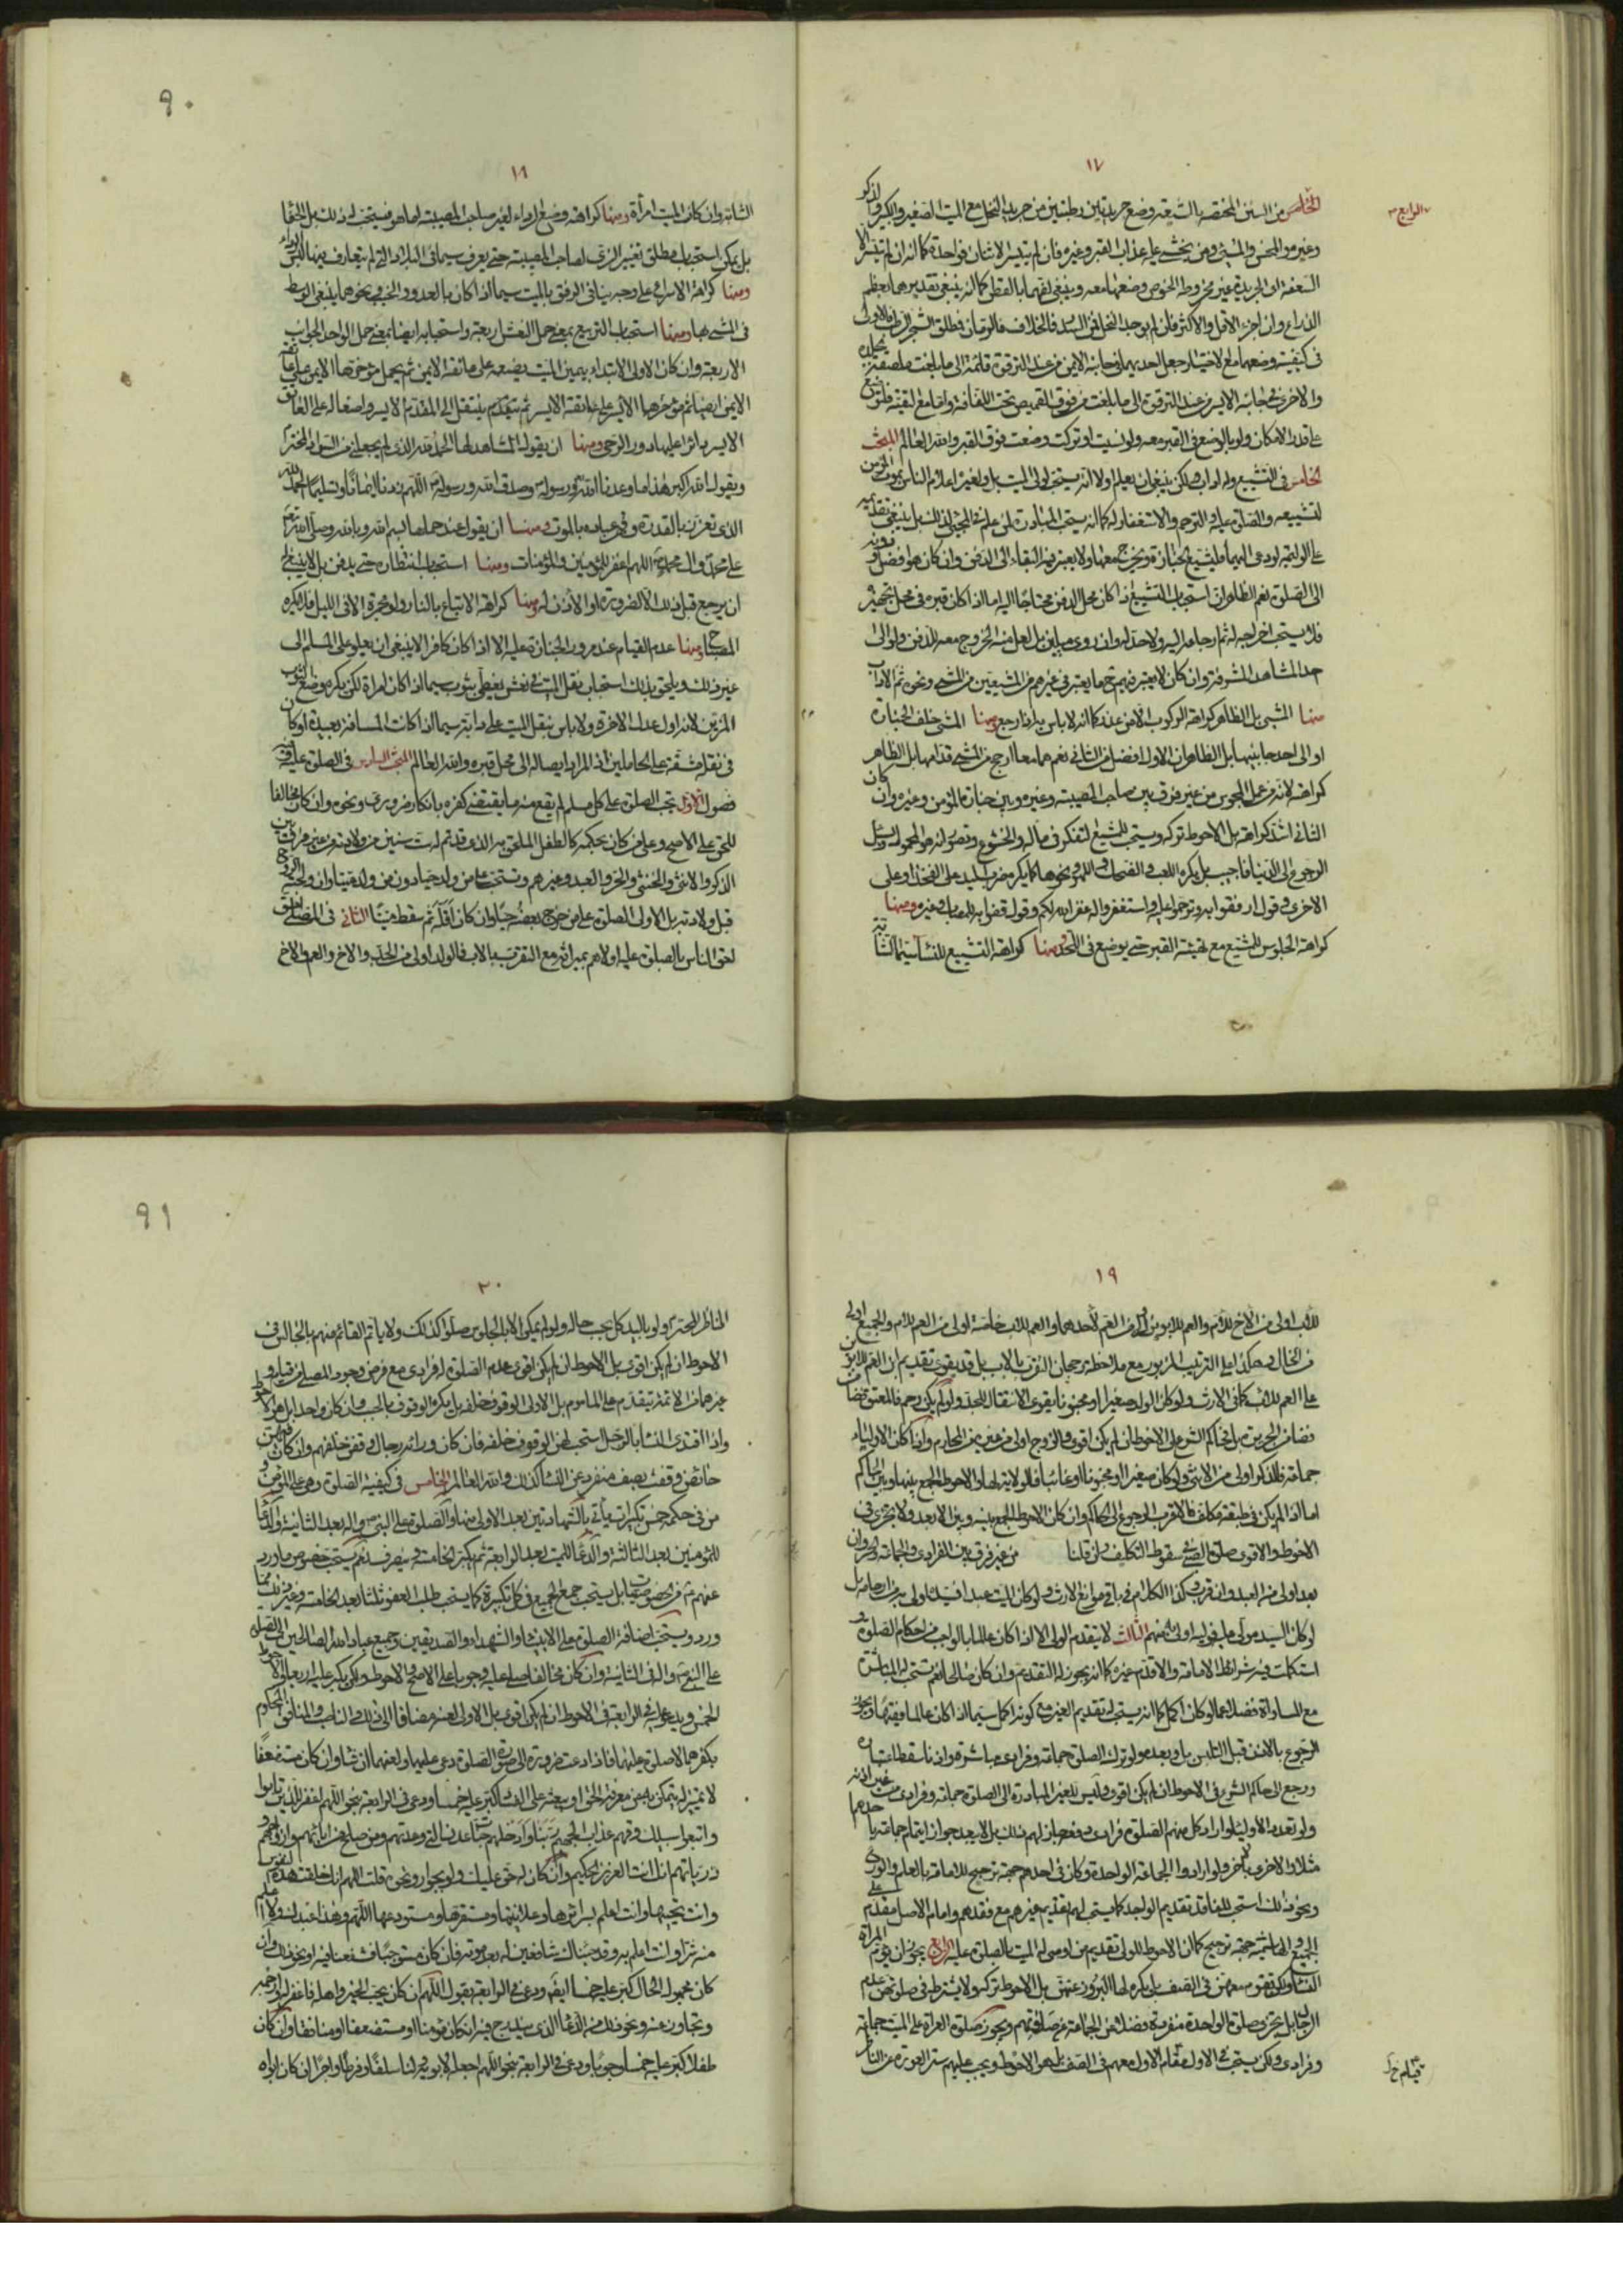 ١٧
الخامس من السنن المختصة بالشيعة وضع جريدتين رطبتين من جريد النخل مع الميت الصغير والكبير والذكر
الرابع
وغيره والمحسن والمسيئ ومن يخشى عليه عذاب القبر وغيره فان لم يتيسر الاثنان فواحدة كما انه ان لم تتيسر الا
السعفة او الجريدة غير مخروطة الخوص وضعهما معه وينبغي لفهما بالقطن كما انه ينبغي تقديرهما بعظم
الذراع وان اجزء الاقل والاكثر فان لم يوجد النخل فمن السدر فالخلاف فالرمان فمطلق الشجر الرطب والاولى
في كيفية وضعهما مع الاختيار جعل احديهما في جانبه الايمن من عند الترقوة قائمة الى ما بلغت ملصقة بجلده
والاخرى في جانبه الايسر من عند الترقوة الى ما بلغت من فوق القميص تحت اللفافة واما مع التقية فلتوضع
على قدر الامكان ولو بالوضع في القبر معه ولو نسيت او تركت وضعت فوق القبر والله العالم المبحث
الخامس في التشييع وله اداب ولكن ينبغي ان يعلم اولا انه يستحب لولي الميت بل ولغيره اعلام الناس بموت المؤمن
لتشييعه والصلوة عليه والترحم والاستغفار له كما انه يستحب المبادرة لمن علم في المجيئ لذلك بل ينبغي تقديمه
على الوليمة لو دعي اليهما فليشيع الجنازة ويخرج معها ولا يعتبر فيه البقاء الى الدفن وان كان هو افضل ودونه
الى الصلوة نعم الظاهر ان استحباب التشييع اذا كان محل الدفن محتاجا اليه اما اذا كان قبره في محل تجهيزه
فلا يستحب اخراجه ثم ارجاعه اليه ولا حد له وان روى ميلين بل لعل منه الخروج معه للدفن ولو الى
احد المشاهد المشرفة وان كان لا يعتبر فيهم ما يعتبر في غيرهم من المشيعين من المشي ونحوه ثم الاداب
منها المشي بل الظاهر كراهة الركوب الا من عذر كما انه لا باس به اذا رجع ومنها المشي خلف الجنازة
او الى احد جانبيها بل الظاهر ان الاول افضل من الثاني نعم هما معا ارجح من المشي قدامها بل الظاهر
كراهته لانه من عمل المجوس من غير فرق بين صاحب المصيبة وغيره وبين جنازة المؤمن وغيره وان كان
الثاني اشد كراهة بل الاحوط تركه ويستحب للمشيع التفكر في ماله والخشوع وتصور انه هو المحمول ويسئل
الرجوع الى الدنيا فاجيب بل يكره اللعب والضحك واللهو ونحوها كما يكره ضرب اليد على الفخذ او على
الاخرى وقول ارفقوا به وترحموا عليه واستغفروا له غفر الله لكم وقول قفوا به للمصاب وغيره ومنها
كراهة الجلوس للمشيع مع تهيئة القبر حتى يوضع في اللحد ومنها كراهة التشييع للنساء سيما الشابة
٩٠
١٨
الشابة وان كان الميت امرأة ومنها كراهة وضع الرداء لغير صاحب المصيبة اما هو فيستحب له ذلك بل الحفا
بل يمكن استحباب مطلق تغيير الزي لصاحب المصيبة حتى يعرف سيما في البلاد التي لم يتعارف فيها لبس الرداء
ومنها كراهة الاسراع على وجه ينافي الرفق بالميت سيما اذا كان بالعدو والخبب ونحوهما بل ينبغي الوسط
في المشي بها ومنها استحباب التربيع بمعنى حمل النعش اربعة واستحبابه ايضا بمعنى حمل الواحد الجوانب
الاربعة وان كان الاولى الابتداء بيمين الميت يضعه على عاتقه الايمن ثم يحمل مؤخرها الايمن على عاتقه
الايمن ايضا ثم مؤخرها الايسر على عاتقه الايسر ثم يتقدم ينتقل الى المقدم الايسر واضعا له على العاتق
الايسر دائرا عليها دور الرحى ومنها ان يقول المشاهد لها الحمد لله الذي لم يجعلني من السواد المخترم
ويقول الله اكبر هذا ما وعدنا الله ورسوله وصدق الله ورسوله اللهم زدنا ايمانا وتسليما الحمد لله
الذي تعزز بالقدرة وقهر عباده بالموت ومنها ان يقول عند حملها بسم الله وبالله وصلى الله
على محمد وال محمد اللهم اغفر للمؤمنين والمؤمنات ومنها استحباب انتظاره حتى يدفن بل لا ينبغي
ان يرجع قبل ذلك الا لضرورة او الاذن له ومنها كراهة الاتباع بالنار ولو مجمرة الا في الليل فلا يكره
المصباح ومنها عدم القيام عند مرور الجنازة عليه الا اذا كان كافرا لا ينبغي ان يعلو على المسلم الى
غير ذلك ويلحق بذلك استحباب نقل الميت في نعش يغطى بثوب سيما اذا كان امرأة لكن يكره وضع الثوب
المزين لانه اول عدل الاخرة ولا باس بنقل الميت على دابة سيما اذا كانت المسافة بعيدة او كان
في نقله مشقة على الحاملين اذ المراد ايصاله الى محل قبره والله العالم المبحث السادس في الصلوة عليه وفيه
فصول الاول تجب الصلوة على كل مسلم لم يقع منه ما يقتضي كفره بانكار ضروري ونحوه وان كان مخالفا
للحق على الاصح وعلى من كان بحكمه كالطفل الملحق به الذي قد تم له ست سنين من ولادته من غير فرق بين
الذكر والانثى والخنثى والحر والعبد وغيرهم وتستحب على من ولد حيا دون من ولد ميتا وان ولجته الروح
قبل ولادته بل الاولى الصلوة على من خرج بعضه حيا وان كان اقله ثم سقط ميتا الثاني في المصلي احق
احق الناس بالصلوة عليه اولاهم بميراثه مع التقرب بالاب فالولد اولى من الجد والاخ والعم والاخ
١٩
للاب اولى من الاخ للام والعم للابوين اولى من العم لأحدهما والعم للاب خاصة اولى من العم للام والجميع اولى
من الخال وهكذا على الترتيب المزبور مع ملاحظة رجحان التقرب بالاب بل قد يقوى تقديم ابن العم للابوين
على العم للاب كما في الارث ولو كان الولد صغيرا او مجنونا يقوى الانتقال للجد ولو لم يكن رحم فالمعتق فضامن
فضامن الجريرة ثم الحاكم الشرعي على الاحوط ان لم يكن اقوى والزوج اولى من غيره من المحارم واذا كان الاولياء
جماعة فالذكر اولى من الانثى ولو كان صغيرا او مجنونا او غائبا فالولاية لها والاحوط الجمع بينها وبين الحاكم
اما اذا لم يكن في طبقته مكلف فالاقرب الرجوع الى الحاكم وان كان الاحوط الجمع بينه وبين الابعد ولا يجزي في
الاحوط والاقوى صلوة الصبي في سقوط التكليف وان قلنا من غير فرق بين الفرادى والجماعة والحر وان
بعد اولى من العبد وان قرب وكذا الكلام في باقي موانع الارث ولو كان الميت عبدا فسيده اولى به من ارحامه بل
لو كان السيد مولى عليه فوليه اولى به منهم الثالث لا يتقدم الولي الا اذا كان عالما بالواجب من احكام الصلوة و
استكملت فيه شرائط الامامة والا قدم غيره كما انه يجوز له التقديم وان كان صالحا نعم تستحب له المباشرة
مع المساواة فضلا عما لو كان اكمل كما انه يستحب له تقديم الغير مع كونه اكمل سيما اذا كان عالما فقيها ويجوز
الرجوع بالاذن قبل التلبس بل وبعده ولو ترك الصلوة جماعة وفرادى مباشرة واذنا سقط اعتباره
ورجع الى حاكم الشرع في الاحوط ان لم يكن اقوى وليس للغير المبادرة الى الصلوة جماعة وفرادى من غير اذنه
ولو تعدد الاولياء لو اراد كل منهم الصلوة فرادى دفعة جاز لهم ذلك بل لا يبعد جواز ايتمام جماعة باحدهما
مثلا والاخرى بآخر ولو ارادوا الجماعة الواحدة وكان في احدهم جهة ترجيح للامامة بالعلم والورع
ونحو ذلك استحب للفاقد تقديم الواجد كما يستحب لهم تقديم غيرهم مع فقدهم وامام الاصل مقدم على
الجميع وفي الهاشمية جهة ترجيح كما ان الاحوط للولي تقديم من اوصى له الميت بالصلوة عليه الرابع يجوز ان تؤم المرأة
النساء ولكن تقوم معهن في الصف بل يكره لها البروز عنهن بل الاحوط تركه ولا يشترط في صلوتهن عدم
الرجال بل تجزي صلوة الواحدة منفردة فضلا عن الجماعة عن صلوتهم ويجوز صلوة العراة على الميت جماعة
وفرادى ولكن يستحب في الاول مقام الاول معهم في الصف بل هو الاحوط ويجب عليهم ستر العورة عن الناظر
قيام خ ل
٩١
٢٠
الناظر المحترم ولو باليد كل بحسب حاله ولو لم يمكن الا بالجلوس صلوا كذلك ولا ياتم القائم منهم بالجالس في
الاحوط ان لم يكن اقوى بل الاحوط ان لم يكن اقوى عدم الصلوة له فرادى مع فرض وجود المصلي من قيام و
غيرها من الائمة يتقدم على الماموم بل الاولى الوقوف خلفه بل يكره الوقوف بالجنب وان كان واحدا بل هو الاحوط
واذا اقتدى النساء بالرجل استحب لهن الوقوف خلفه فان كان وراءه رجال وقفن خلفهم وان كان فيهن
حائض وقفت بصف منفرد عن النساء كذلك والله العالم الخامس في كيفية الصلوة وهي على المؤمن و
من في حكمه خمس تكبيرات يأتي بالشهادتين بعد الاولى منها والصلوة على النبي واله بعد الثانية والدعاء
للمؤمنين بعد الثالثة والدعاء للميت بعد الرابعة ثم يكبر الخامسة وينصرف نعم يستحب خصوص ما ورد
ورد ويستحب اضافة الصلوة على الانبياء والشهداء والصديقين وجميع عباد الله الصالحين الى الصلوة
على النبي واله في الثانية وان كان مخالفا صلى عليه وجوبا على الاصح والاحوط ولكن يكبر عليه اربعا والاحوط
الخمس ويدعو له في الرابعة
بكفرهما لا صلوة عليهما فاذا دعت ضرورة الى صورة الصلوة دعى عليهما ولعنهما ان شاء وان كان مستضعفا
واتبعوا سبيلك وقهم عذاب الجحيم ربنا وادخلهم جنات عدن التي وعدتهم ومن صلح من ابائهم وازواجهم و
ذرياتهم انك انت العزيز الحكيم وان كان له حق عليك ولو بجوار ونحوه قلت اللهم انك خلقت هذه النفوس
وانت تحييها وانت اعلم بسرائرها وعلانيتها ومستقرها ومستودعها اللهم وهذا عبدك ولا اعلم
منه شرا وانت اعلم به وقد جئناك شافعين له بعد موته فان كان مستوجبا فشفعنا فيه او نحو ذلك وان
كان مجهول الحال كبر عليه خمسا ايضا ودعى في الرابعة بقول اللهم ان كان يحب الخير واهله فاغفر له وارحمه
وتجاوز عنه ونحو ذلك من الدعاء الذي يندرج فيه ان كان مؤمنا او مستضعفا او منافقا وان كان
طفلا كبر عليه خمسا وجوبا ودعى في الرابعة بنحو اللهم اجعله لابويه ولنا سلفا وفرطا واجرا ان كان ابواه